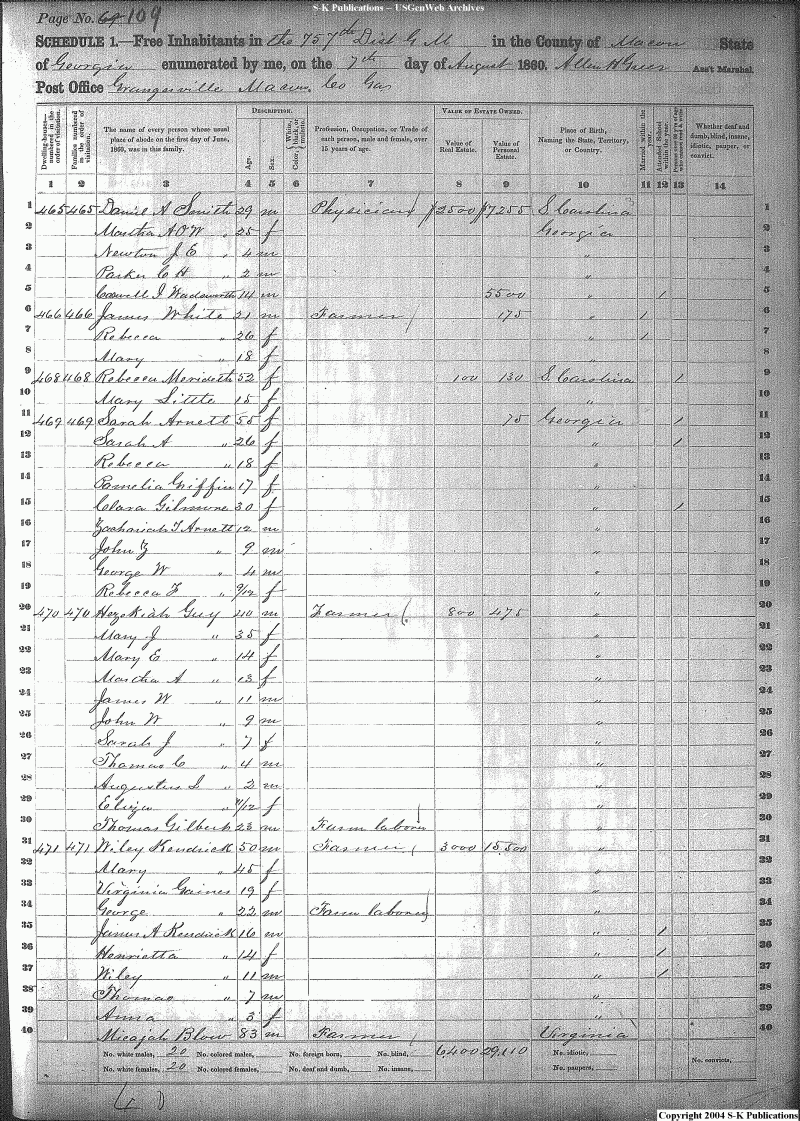 S-K Publications – USGenWeb Archives
Page No. 69 109
SCHEDULE 1.—Free Inhabitants in the 757th Dist G M in the County of Macon State
of Georgia enumerated by me, on the 7th day of August 1860. Allen H Greer Ass't Marshal.
Post Office Grangerville Macon Co Gas
Dwelling-houses—numbered in the order of visitation.
Families numbered in the order of visitation.
The name of every person whose usual place of abode on the first day of June, 1860, was in this family.
DESCRIPTION.
Age.
Sex.
Color, White, black, or mulatto.
Profession, Occupation, or Trade of each person, male and female, over 15 years of age.
VALUE OF ESTATE OWNED.
Value of Real Estate.
Value of Personal Estate.
Place of Birth, Naming the State, Territory, or Country.
Married within the year.
Attended School within the year.
Whether deaf and dumb, blind, insane, idiotic, pauper, or convict.
1 2 3 4 5 6 7 8 9 10 11 12 13 14
1 465 465 Daniel A Smith 29 m Physician 2500 7255 S. Carolina 1
2 Martha A O W " 25 f Georgia 2
3 Newton J E " 4 m " 3
4 Parker C H " 2 m " 4
5 Wadsworth 14 m 5500 " / 5
6 466 466 James White 21 m Farmer 175 " / 6
7 Rebecca " 26 f " / 7
8 Mary " 18 f " 8
9 468 468 Rebecca Merideth 52 f 100 130 S. Carolina / 9
10 Mary Little 15 f " 10
11 469 469 Sarah Arnett 55 f 75 Georgia / 11
12 Sarah A " 26 f " / 12
13 Rebecca " 18 f " 13
14 Pamelia Griffin 17 f " 14
15 Clara Gilmore 30 f " / 15
16 Zachariah T Arnett 12 m " 16
17 John Z " 9 m " 17
18 George W " 4 m " 18
19 Rebecca F " 9/12 f " 19
20 470 470 Hezekiah Guy 40 m Farmer 800 475 " 20
21 Mary J " 35 f " 21
22 Mary E " 14 f " 22
23 Martha A " 13 f " 23
24 James W " 11 m " 24
25 John W " 9 m " 25
26 Sarah J " 7 f " 26
27 Thomas C " 4 m " 27
28 Augustus L " 2 m " 28
29 Eliza " 11/12 f " 29
30 Thomas Gilbert 23 m Farm laborer " 30
31 471 471 Wiley Kendrick 50 m Farmer 3000 15,500 " 31
32 Mary " 45 f " 32
33 Virginia Gaines 19 f " 33
34 George " 22 m Farm laborer " 34
35 James A Kendrick 16 m " / 35
36 Henrietta " 14 f " / 36
37 Wiley " 11 m " / 37
38 Thomas " 7 m " 38
39 Anna " 3 f " 39
40 Micajah Blow 83 m Farmer Virginia 40
No. white males, 20 No. colored males, No. foreign born, No. blind, 6400 29,110 No. idiotic, No. convicts,
No. white females, 20 No. colored females, No. deaf and dumb, No. insane, No. paupers,
Copyright 2004 S-K Publications